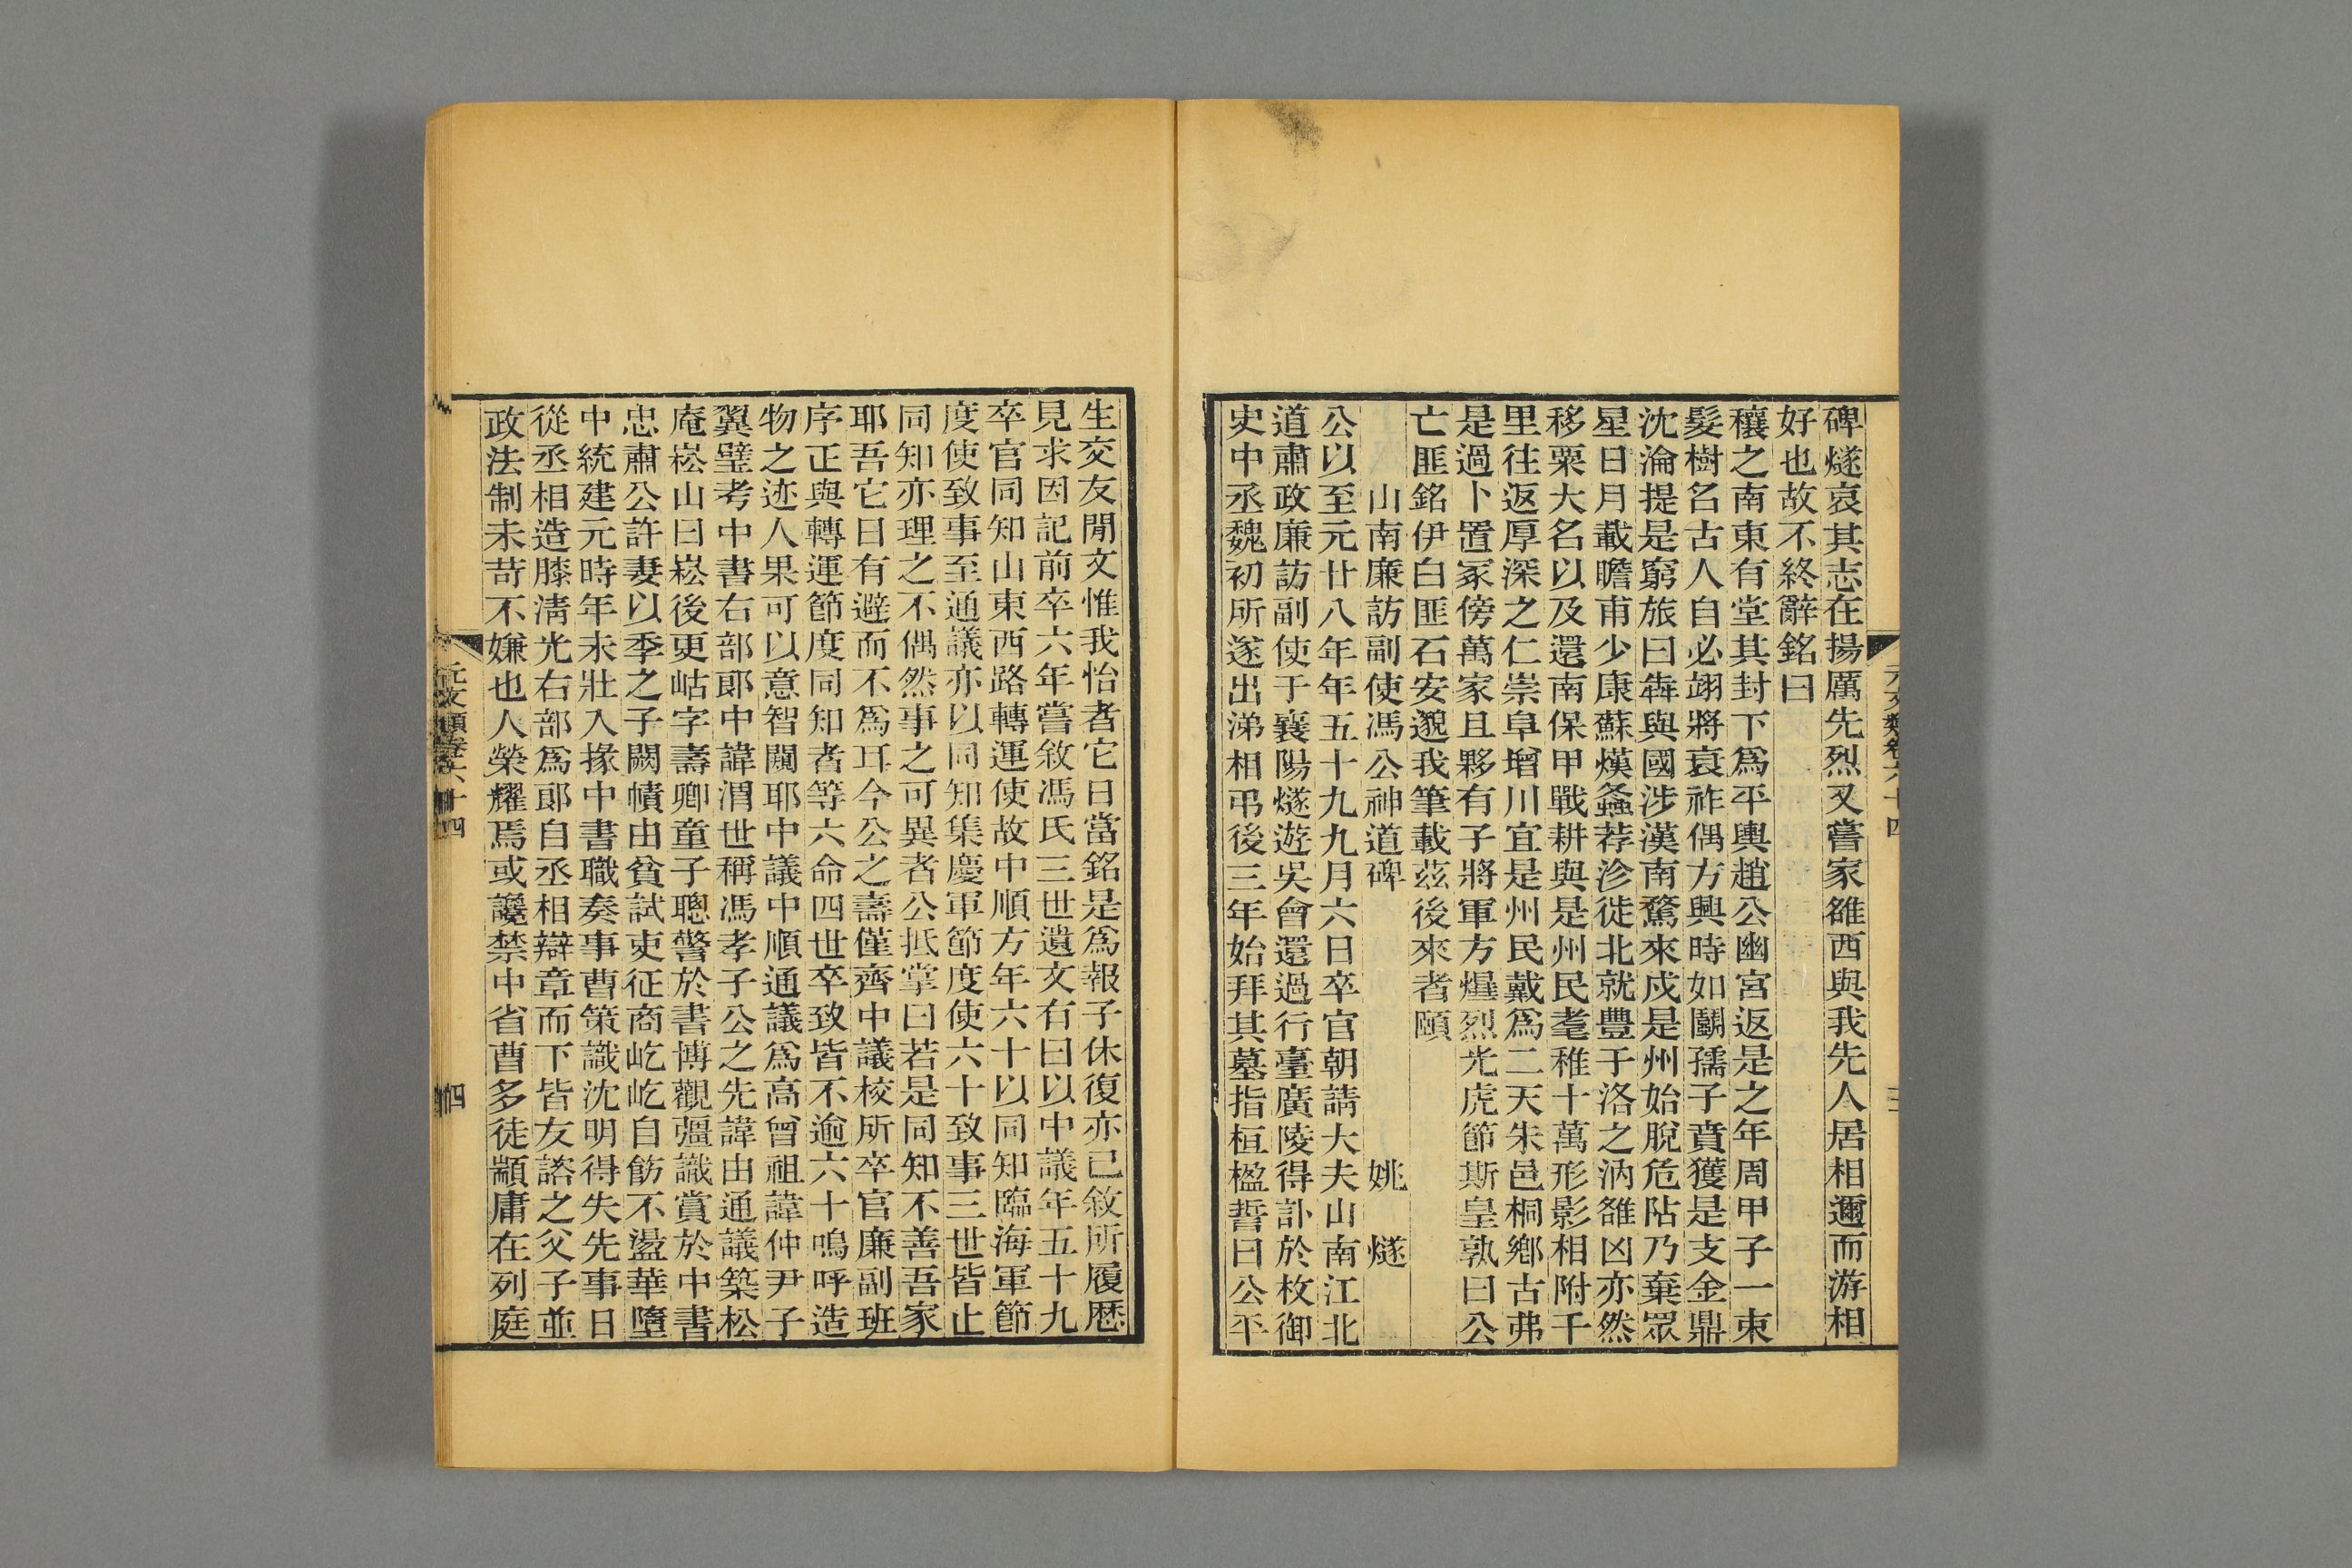 碑燧哀其志在揚厲先烈又嘗家雒西與我先人居相邇而游相
好也故不終辭銘曰
穰之南東有堂其封下爲平輿趙公幽宮返是之年周甲子一束
髮樹名古人自必翊將衰祚偶方興時如鬭孺子賁獲是支金鼎
沈淪提是窮旅曰犇與國涉漢南騖來戍是州始脫危阽乃棄眾
星日月載瞻甫少康蘇熯螽荐沴徙北就豐于洛之汭雒凶亦然
移粟大名以及還南保甲戰耕與是州民耄稚十萬形影相附千
里往返厚深之仁崇阜增川宜是州民戴爲二天朱邑桐鄉古弗
是過卜置冢傍萬家且夥有子將軍方熚烈光虎節斯皇孰曰公
亡匪銘伊白匪石安邈我筆載茲後來者願
山南廉訪副使馮公神道碑 姚燧
公以至元廿八年年五十九九月六日卒官朝請大夫山南江北
道肅政廉訪副使于襄陽燧遊吳會還過行臺廣陵得訃於枚御
史中丞魏初所遂出涕相弔後三年始拜其墓指桓楹誓曰公平
元文類卷六十四
三
生交友閒文惟我怡者它日當銘是爲報子休復亦已敘所履歷
見求因記前卒六年嘗敘馮氏三世遺文有曰以中議年五十九
卒官同知山東西路轉運使故中順方年六十以同知臨海軍節
度使致事至通議亦以同知集慶軍節度使六十致事三世皆止
同知亦理之不偶然事之可異者公抵掌曰若是同知不善吾家
耶吾它日有避而不爲耳今公之壽僅齊中議校所卒官廉副班
序正與轉運節度同知者等六命四世卒致皆不逾六十嗚呼造
物之迹人果可以意智闚耶中議中順通議爲高曾祖諱仲尹子
翼璧考中書右部郎中諱渭世稱馮孝子公之先諱由通議築松
庵崧山曰崧後更岵字壽卿童子聰警於書博觀彊識賞於中書
忠肅公許妻以季之子闕幘由貧試吏征商屹屹自飭不盪華墮
中統建元時年未壯入掾中書職奏事曹策識沈明得失先事日
從丞相造膝清光右部爲郎自丞相辯章而下皆友諮之父子並
政法制未苛不嫌也人榮耀焉或讒禁中省曹多徒顓庸在列庭
元文類卷六十四
四